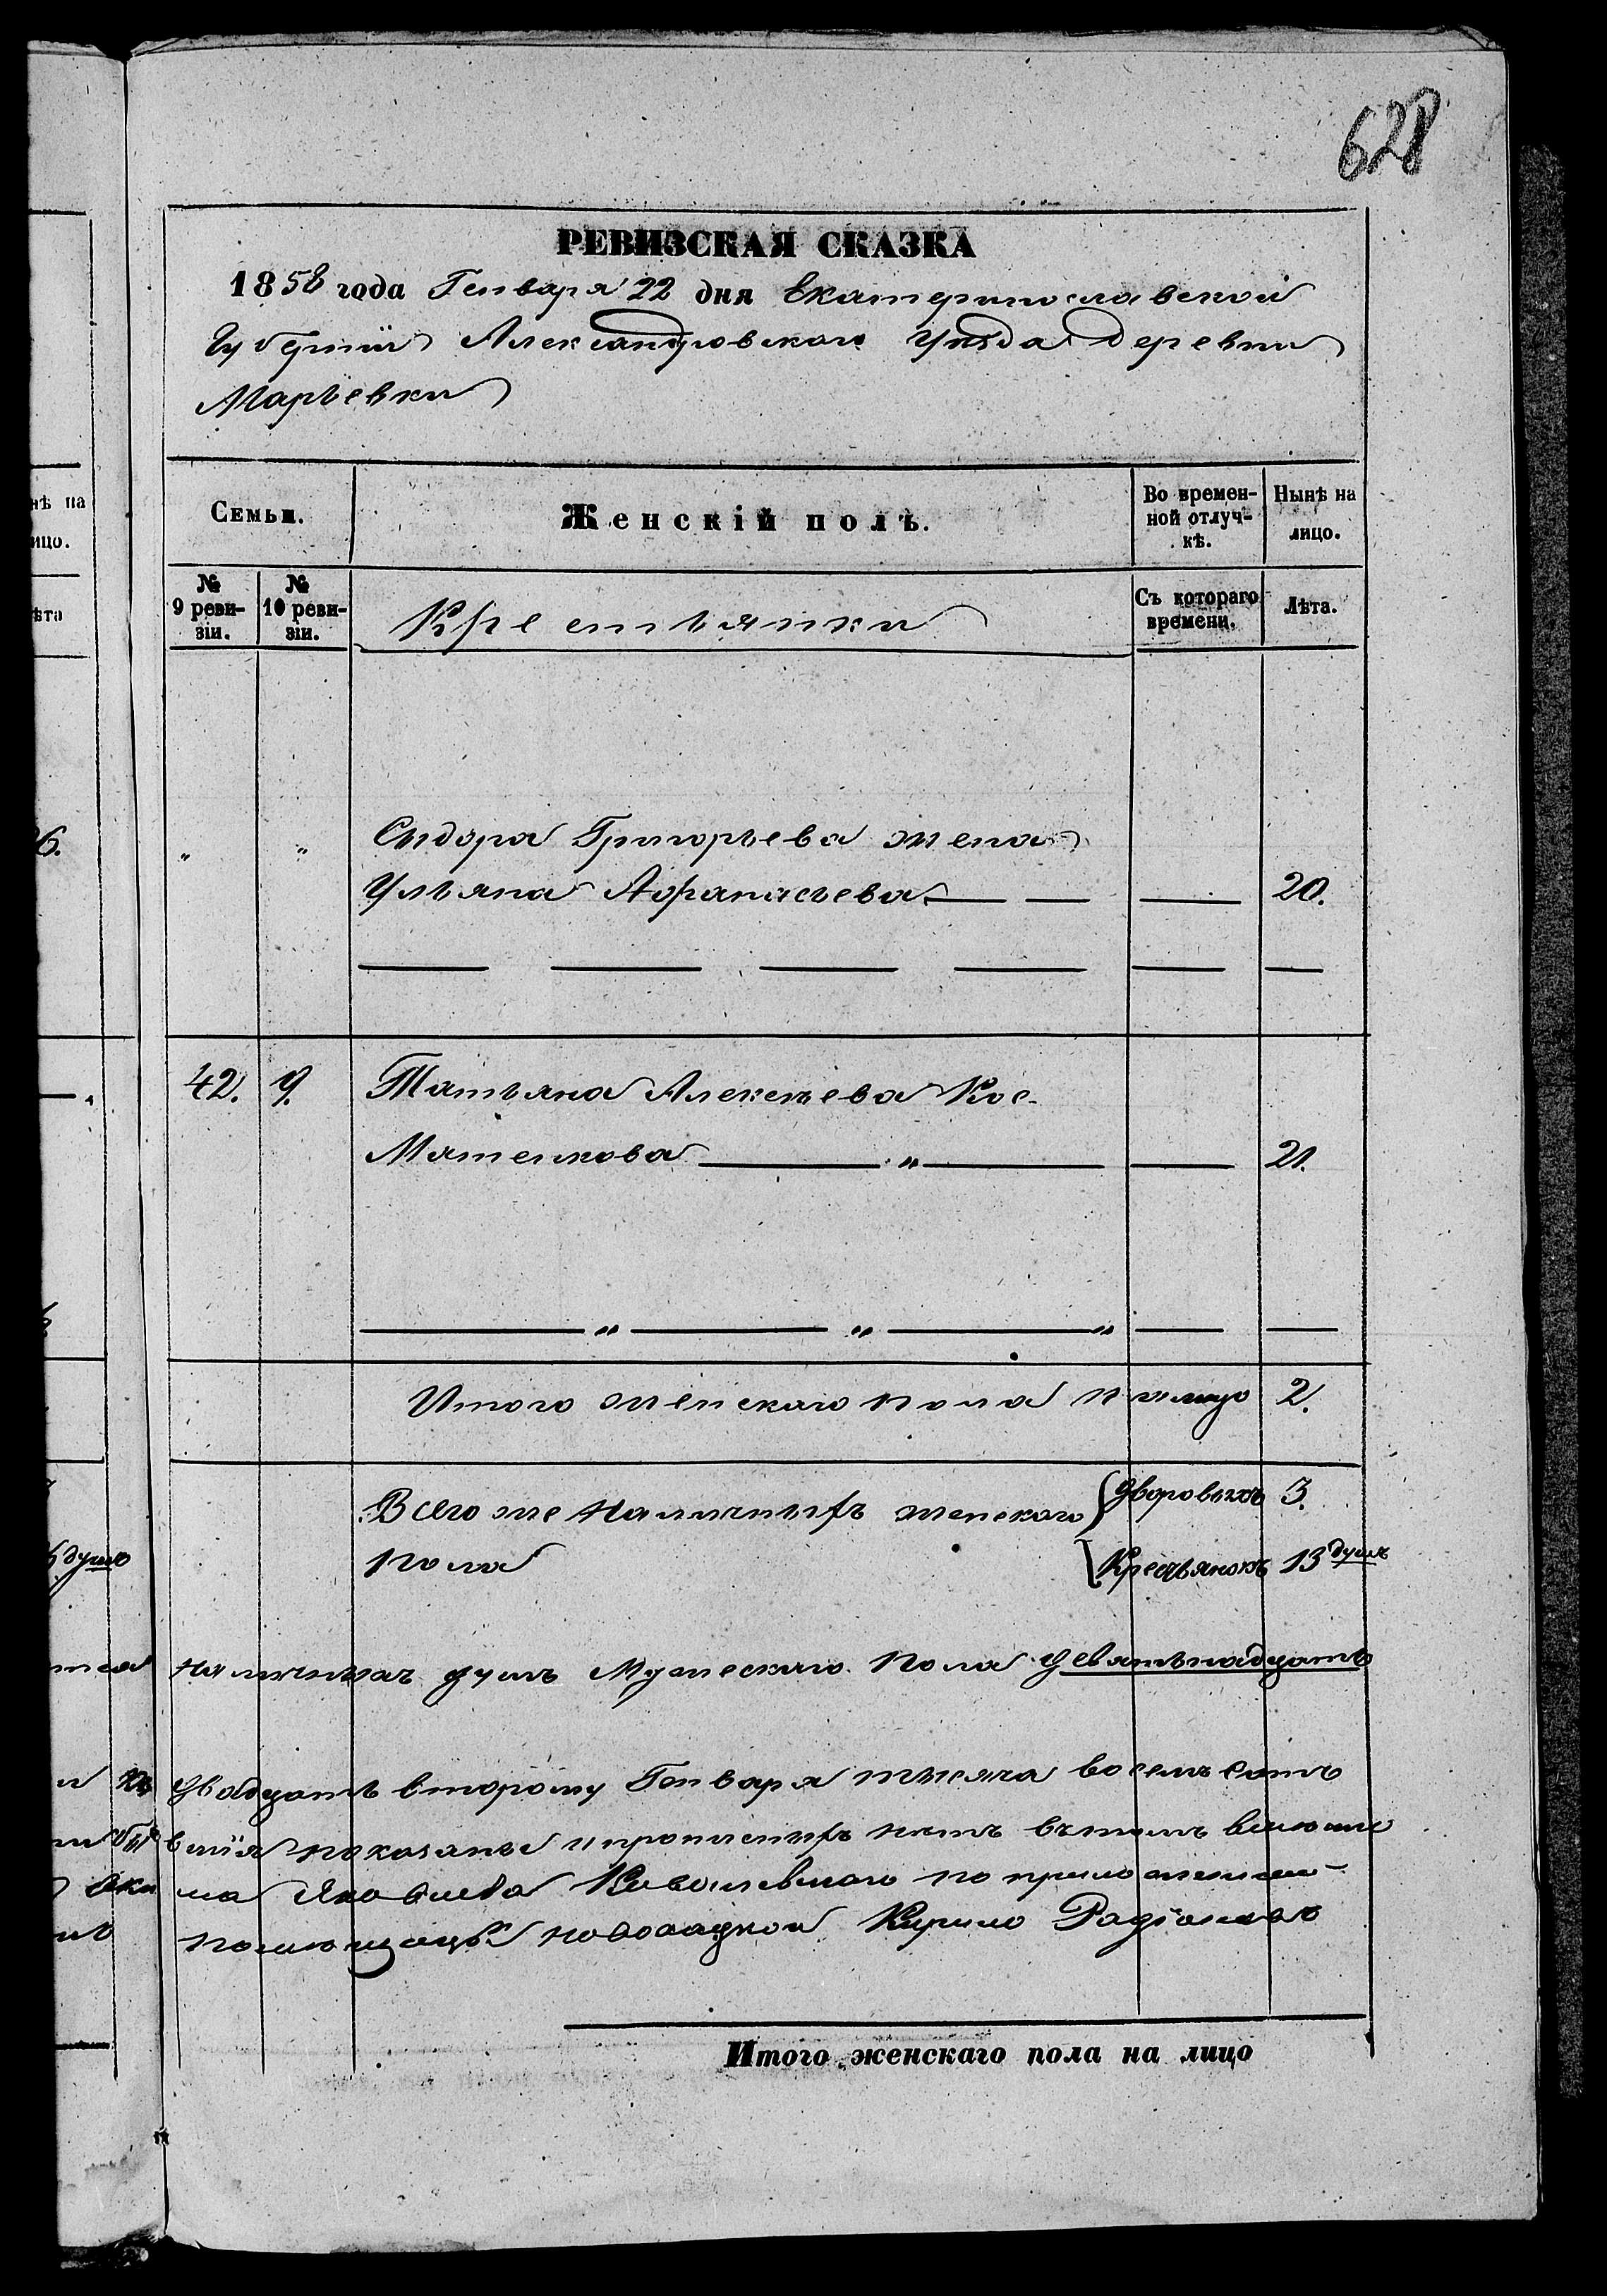 628
РЕВИЗСКАЯ СКАЗКА
1858 года Генваря 22 дня Екатеринославской
Губернии Александровского Уѣзда деревни
Марьевки
Семьи.
Женскій полъ.
Во времен-
ной отлуч-
кѣ.
Нынѣ на
лицо.
№
9 реви-
зіи.
№
10 реви-
зіи.
Крестьянки
Съ котораго
времени.
Лѣта.
" " Сидора Григорьева жена
Ульяна Афанасьева 20.
42. 9. Татьяна Алексѣева Кос-
Матенкова " 21.
Итого женскаго пола на лицо 2.
Всего же наличныхъ женскаго
пола
дворовыхъ 3.
Крестьянокъ 13 душъ
наличныхъ душъ мужескаго пола девятьнадцать
двадцать второму Генваря тысяча восемь сотъ
показаны и прописныхъ нѣтъ въ томъ
Яковлева по приложенной
Кирило Радіоновъ
Итого женскаго пола на лицо